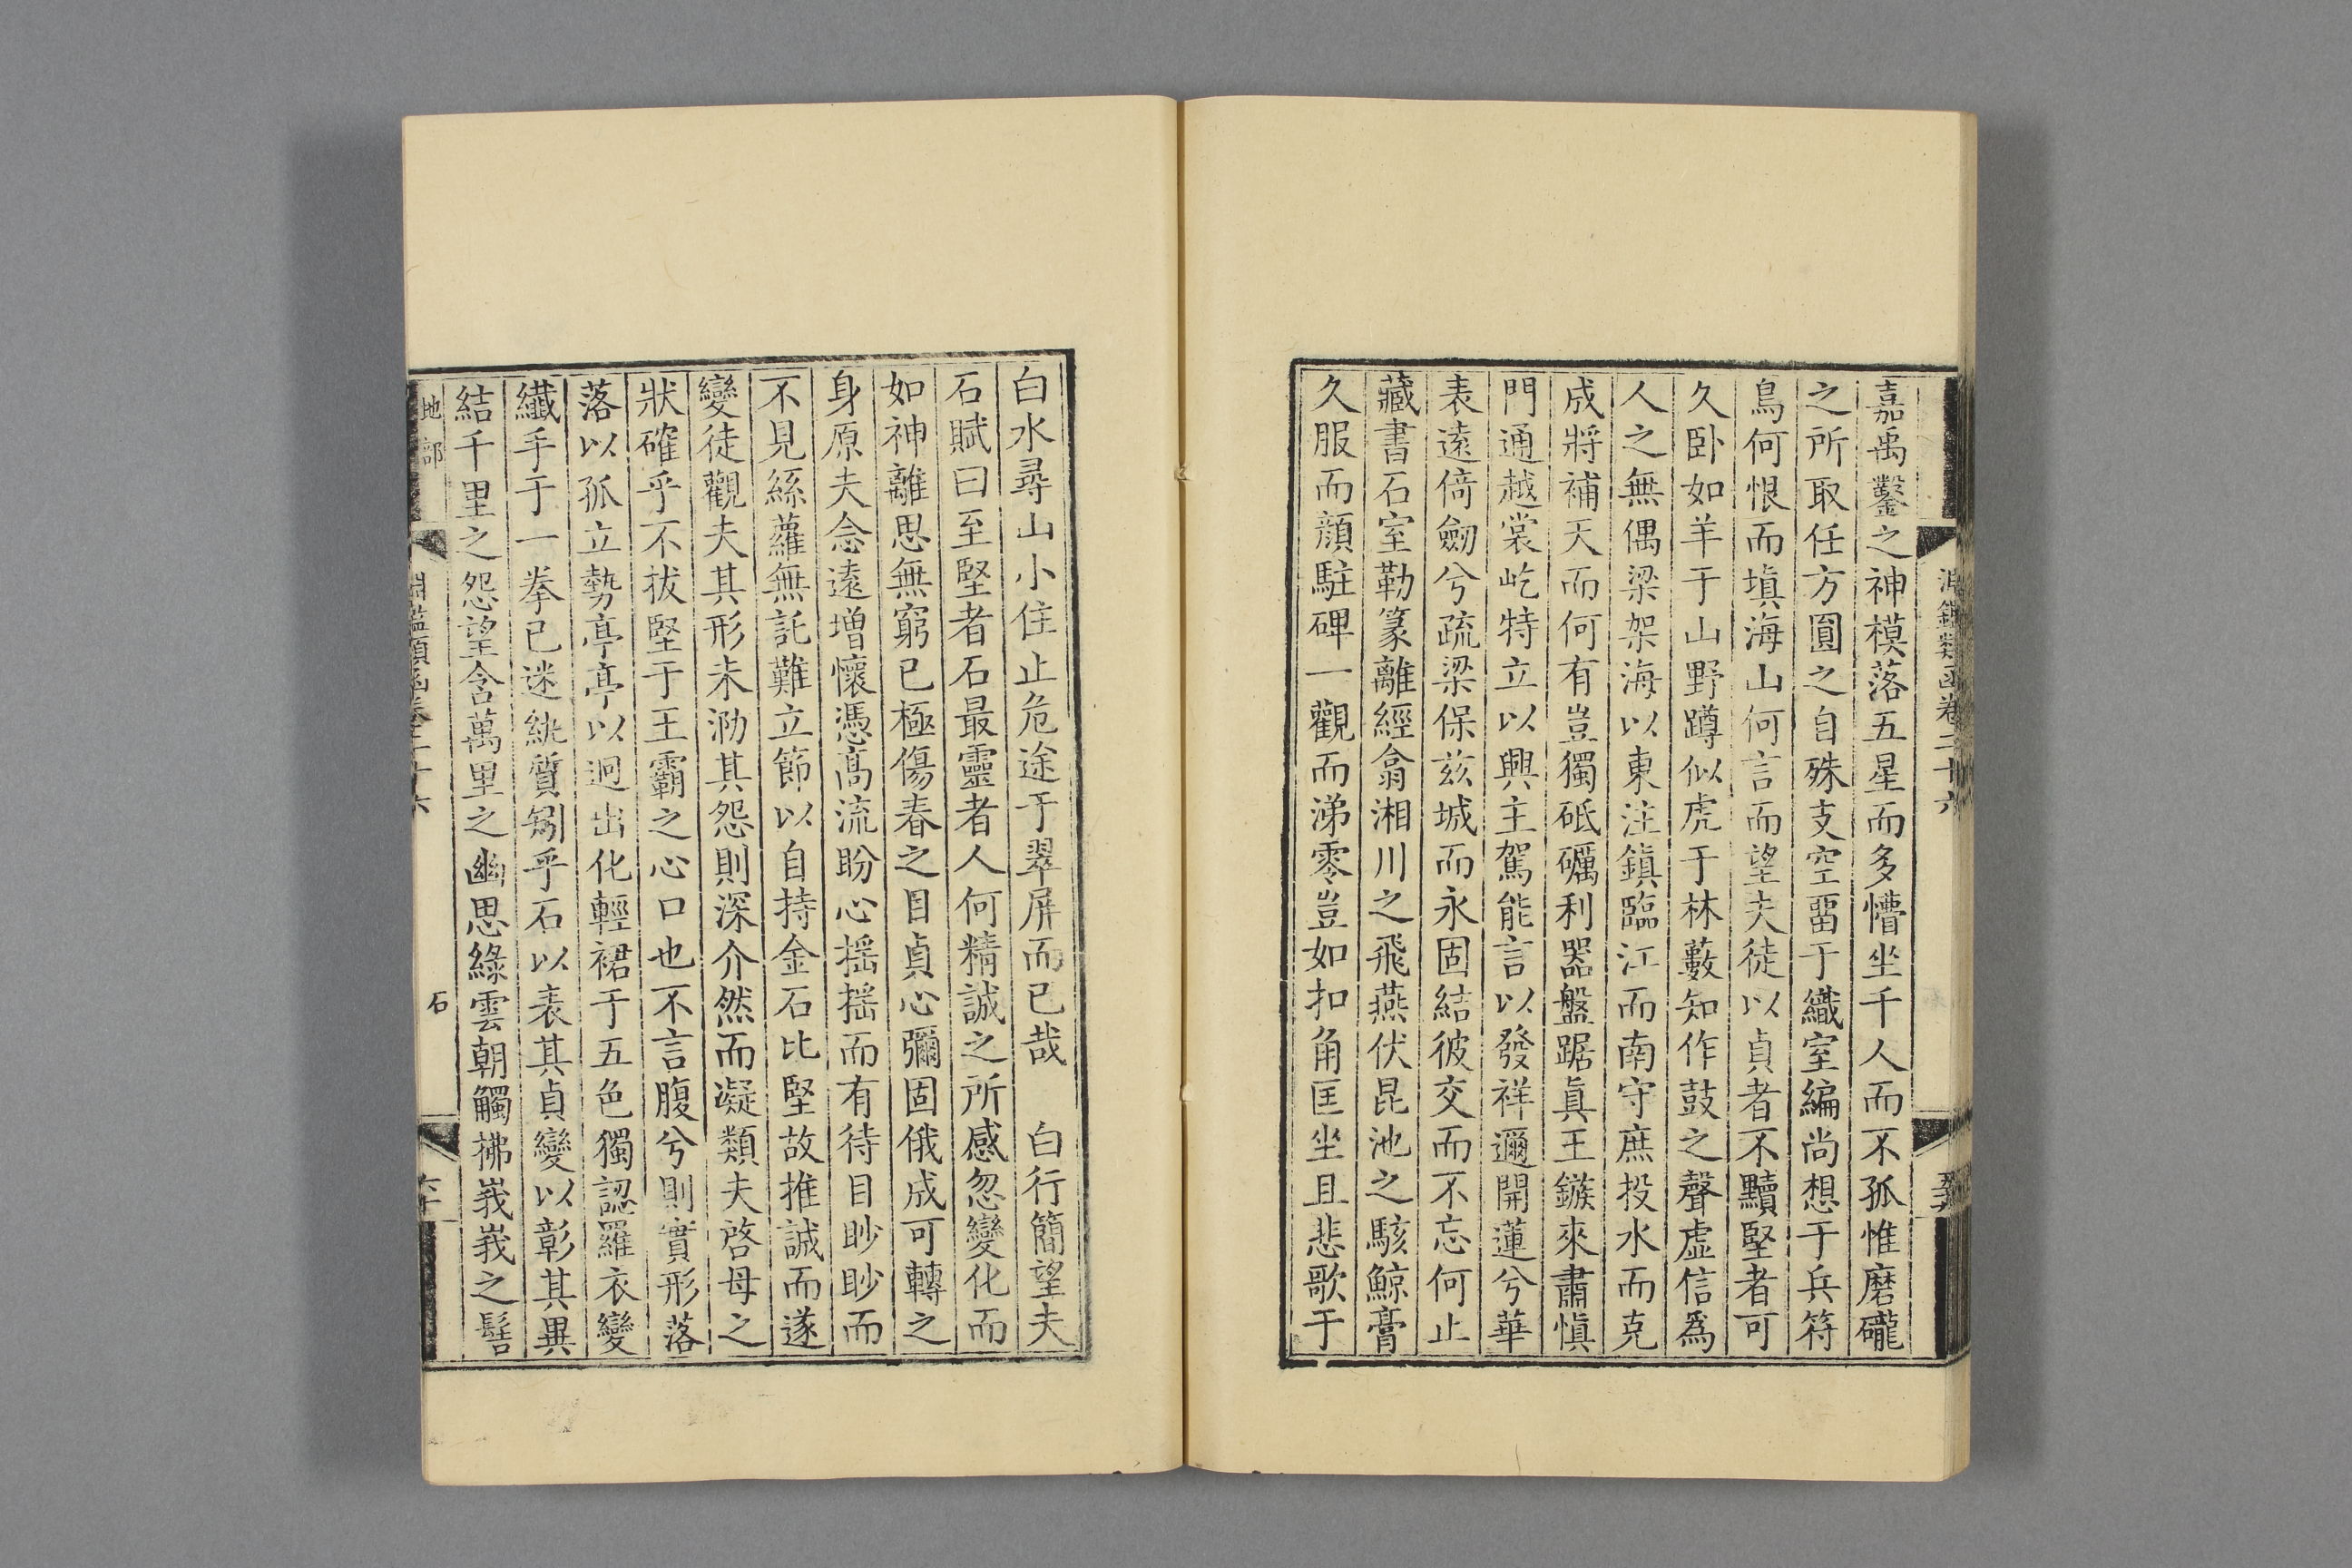 淵鑑類函卷二十六
嘉禹鑿之神模落五星而多慒坐千人而不孤惟磨礲
之所取任方圓之自殊支空畱于織室編尚想于兵符
鳥何恨而塡海山何言而望夫徒以貞者不黷堅者可
久臥如羊于山野蹲似虎于林藪知作鼓之聲虛信爲
人之無偶梁架海以東注鎭臨江而南守庶投水而克
成將補天而何有豈獨砥礪利器盤踞眞王鏃來肅愼
門通越裳屹特立以興主駕能言以發祥邇開蓮兮華
表遠倚劒兮疏梁保茲城而永固結彼交而不忘何止
藏書石室勒篆離經翕湘川之飛燕伏昆池之駭鯨膏
久服而顏駐碑一觀而涕零豈如扣角匡坐且悲歌于
白水尋山小住止危途于翠屏而已哉　白行簡望夫
石賦曰至堅者石最靈者人何精誠之所感忽變化而
如神離思無窮已極傷春之目貞心彌固俄成可轉之
身原夫念遠增懷憑高流盼心搖搖而有待目眇眇而
不見絲蘿無託難立節以自持金石比堅故推誠而遂
變徒觀夫其形未泐其怨則深介然而凝類夫啓母之
狀確乎不拔堅于王霸之心口也不言腹兮則實形落
落以孤立勢亭亭以迥出化輕裙于五色獨認羅衣變
纖手于一拳已迷紈質矧乎石以表其貞變以彰其異
結千里之怨望含萬里之幽思綠雲朝觸拂峩峩之髻
地部
淵鑑類函卷二十六
石
六十